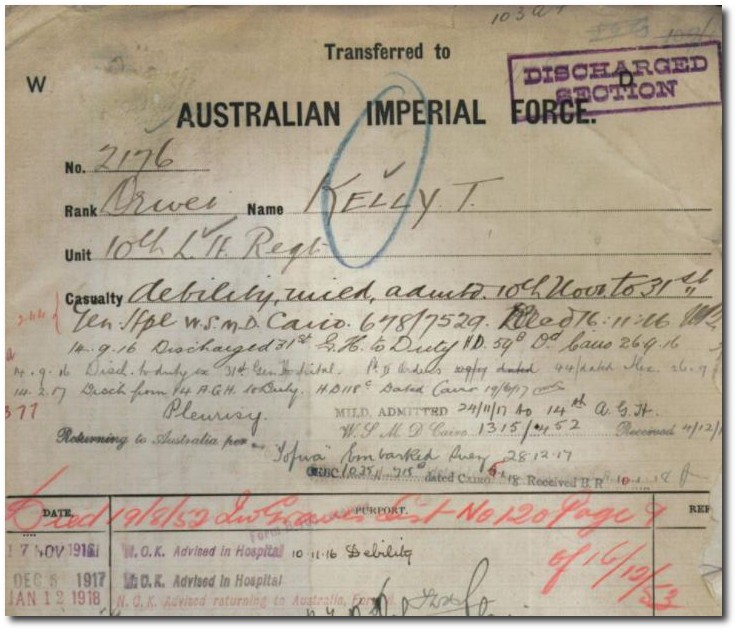 Transferred to
W
DISCHARGED
SECTION
D.
AUSTRALIAN IMPERIAL FORCE.
No. 2176
Rank Driver Name KELLY T.
Unit 10th L. H. Regt
Casualty debility, mild, admtd. 10th Novr to 31st
Gen Hpl W.S.M.D. Cairo. 678/7529. Recd 16.11.16
14.9.16 Discharged 31st G.H. to Duty H.D. 59 Dd Cairo 26.9.16
14.9.16 Disch. to duty ex 31st Gen. Hospital. dated
14.2.17 Disch from 14 A.G.H. to Duty. H.D 118 Dated Cairo 19/6/17
377
Pleurisy. MILD. ADMITTED 24/11/17 to 14th A.G.H.
W.S.M.D Cairo 1315/452 Received 4/12/1
Returning to Australia per "Tofua" Embarked Suez 28.12.17
dated CAIRO .18. Received B.R 10.1.18
DATE. PURPORT. REF
Died 19/8/52 In Graves List No 120 Page 9
of 16/12/53
17 NOV 1916 N.O.K. Advised in Hospital 10.11.16 Debility
DEC 5 1917 N.O.K. Advised in Hospital
JAN 12 1918 N.O.K. Advised returning to Australia,